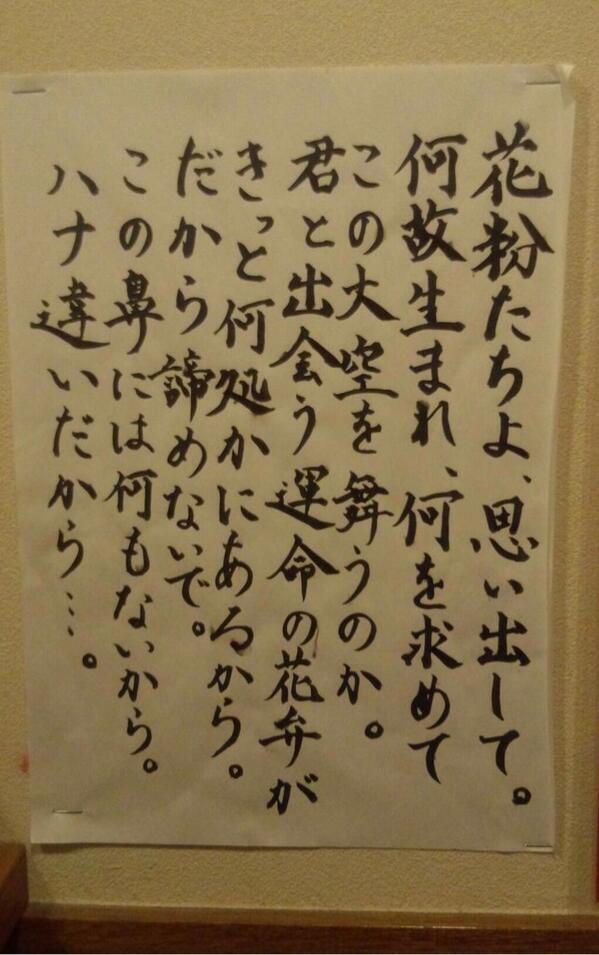 花粉たちよ、思い出して。
何故生まれ、何を求めて
この大空を舞うのか。
君と出会う運命の花弁が
きっと何処かにあるから。
だから諦めないで。
この鼻には何もないから。
ハナ違いだから…。